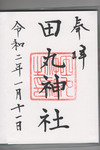 奉拝
田丸神社
令和二年一月十一日